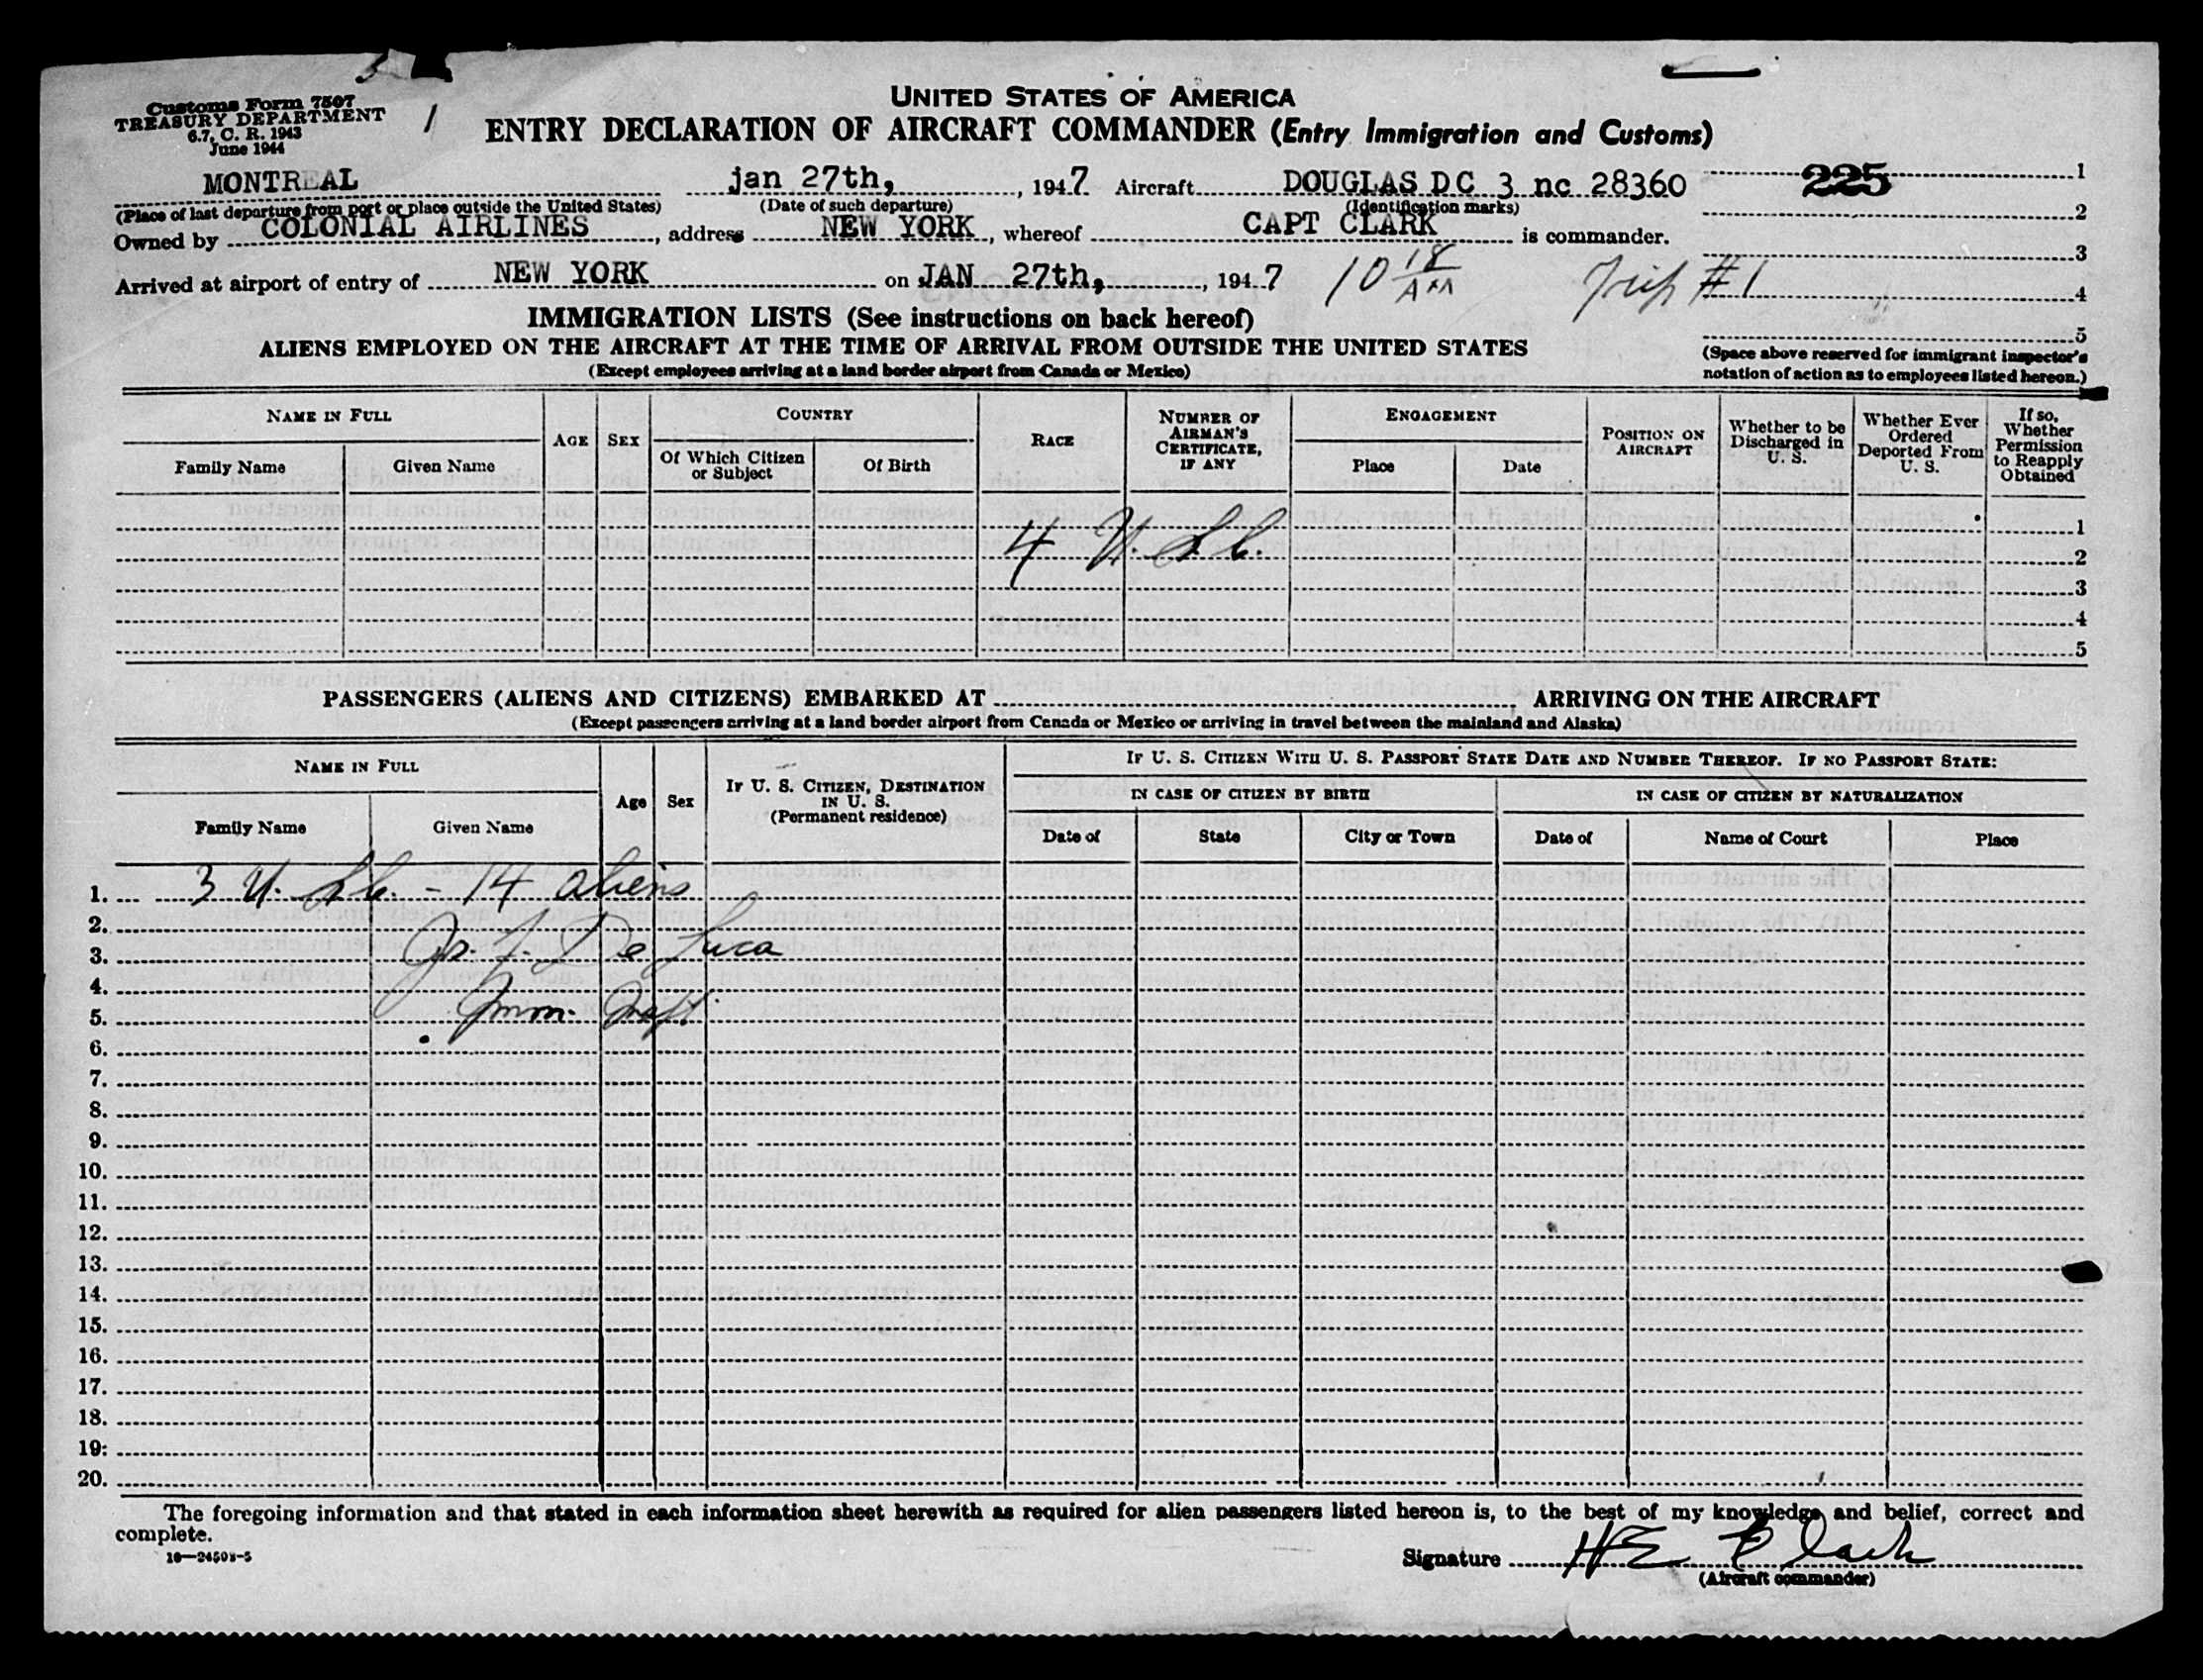 5
Customs Form 7507
TREASURY DEPARTMENT
6.7, C. R. 1943
June 1944
1
UNITED STATES OF AMERICA
ENTRY DECLARATION OF AIRCRAFT COMMANDER (Entry Immigration and Customs)
MONTREAL jan 27th, , 1947 Aircraft DOUGLAS DC 3 nc 28360
(Place of last departure from port or place outside the United States) (Date of such departure) (Identification marks)
225 1
2
Owned by COLONIAL AIRLINES, address NEW YORK, whereof CAPT CLARK is commander.
3
Arrived at airport of entry of NEW YORK on JAN 27th, , 1947 10 18 AM Trip #1
4
5
(Space above reserved for immigrant inspector's notation of action as to employees listed hereon.)
IMMIGRATION LISTS (See instructions on back hereof)
ALIENS EMPLOYED ON THE AIRCRAFT AT THE TIME OF ARRIVAL FROM OUTSIDE THE UNITED STATES
(Except employees arriving at a land border airport from Canada or Mexico)
NAME IN FULL
Family Name
Given Name
AGE
SEX
COUNTRY
Of Which Citizen or Subject
Of Birth
RACE
NUMBER OF AIRMAN'S CERTIFICATE, IF ANY
ENGAGEMENT
Place
Date
POSITION ON AIRCRAFT
Whether to be Discharged in U. S.
Whether Ever Ordered Deported From U. S.
If so, Whether Permission to Reapply Obtained
1
4 U. S. C.
2
3
4
5
PASSENGERS (ALIENS AND CITIZENS) EMBARKED AT , ARRIVING ON THE AIRCRAFT
(Except passengers arriving at a land border airport from Canada or Mexico or arriving in travel between the mainland and Alaska)
NAME IN FULL
Family Name
Given Name
Age
Sex
IF U. S. CITIZEN, DESTINATION IN U. S.
(Permanent residence)
IF U. S. CITIZEN WITH U. S. PASSPORT STATE DATE AND NUMBER THEREOF. IF NO PASSPORT STATE:
IN CASE OF CITIZEN BY BIRTH
Date of
State
City or Town
IN CASE OF CITIZEN BY NATURALIZATION
Date of
Name of Court
Place
1. 3 U. S. C. - 14 aliens
2.
3. Jos. F. De Luca
4.
5. Imm. Insp.
6.
7.
8.
9.
10.
11.
12.
13.
14.
15.
16.
17.
18.
19.
20.
The foregoing information and that stated in each information sheet herewith as required for alien passengers listed hereon is, to the best of my knowledge and belief, correct and
complete.
Signature HE Clark
(Aircraft commander)